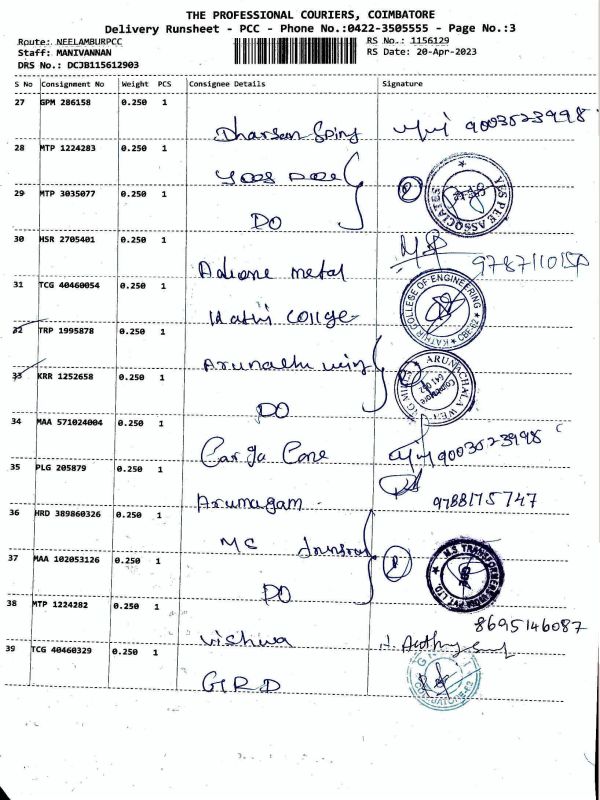 THE PROFESSIONAL COURIERS, COIMBATORE
Delivery Runsheet - PCC - Phone No.:0422-3505555 - Page No.:3
Route: NEELAMBURPCC RS No.: 1156129
Staff: MANIVANNAN RS Date: 20-Apr-2023
DRS No.: DCJB115612903
S No Consignment No Weight PCS Consignee Details Signature
27 GPM 286158 0.250 1
Dharsan Sping 9003523998
28 MTP 1224283 0.250 1
YES PEE ASSOCIATES
29 MTP 3035077 0.250 1
DO
30 HSR 2705401 0.250 1
Adione metal
31 TCG 40460054 0.250 1
Kathi College KATHIR COLLEGE OF ENGINEERING
32 TRP 1995878 0.250 1
33 KRR 1252658 0.250 1
DO
34 MAA 571024004 0.250 1
Cargo Cone 9003523998
35 PLG 205879 0.250 1
Arumugam 9788175747
36 HRD 389860326 0.250 1
MS
37 MAA 102053126 0.250 1
DO
38 MTP 1224282 0.250 1
8695146087
Vishwa
39 TCG 40460329 0.250 1
GRD